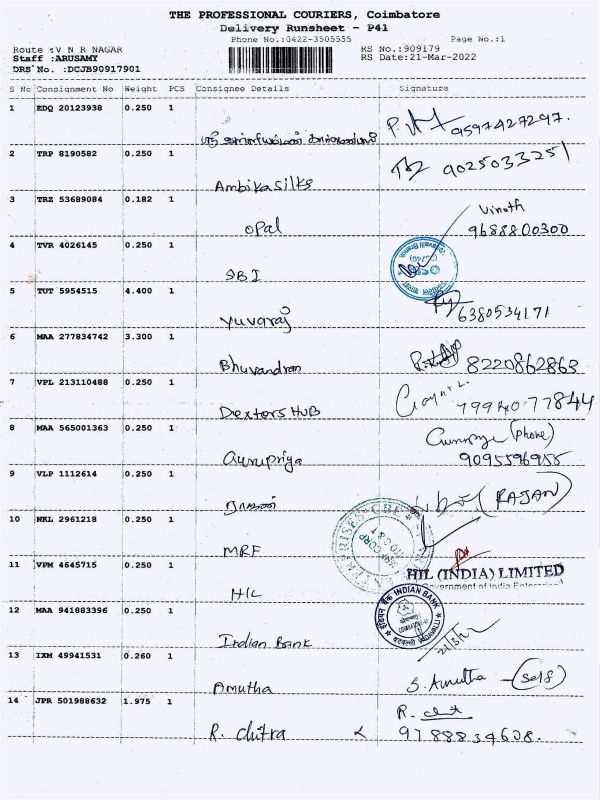 THE PROFESSIONAL COURIERS, Coimbatore
Delivery Runsheet - P41
Phone No.:0422-3505555
Page No.:1
Route :V N R NAGAR
RS No.:909179
Staff :ARUSAMY
RS Date:21-Mar-2022
DRS No. :DCJB90917901
S No Consignment No Weight PCS Consignee Details Signature
1 EDQ 20123938 0.250 1
9597427297.
2 TRP 8190582 0.250 1
Ambika Silks 9025033251
3 TRZ 53689084 0.182 1
Opal Vinoth
9688800300
4 TVR 4026145 0.250 1
SBI
5 TUT 5954515 4.400 1
Yuvaraj 6380534171
6 MAA 277834742 3.300 1
Bhuvandran 8220862863
7 VPL 213110488 0.250 1
Dextors HUB 79940 77844
8 MAA 565001363 0.250 1
(phone)
Gurupriya 9095596955
9 VLP 1112614 0.250 1
ராஜன் (RAJAN)
10 NKL 2961218 0.250 1
MRF
11 VPM 4645715 0.250 1
HIL HIL (INDIA) LIMITED
Government of India
12 MAA 941883396 0.250 1
INDIAN BANK
इंडियन बैंक
Indian Bank 21/3/22
13 IXM 49941531 0.260 1
Amutha S. Amutha - (Self)
14 JPR 501988632 1.975 1
R. chitra 9788834608.